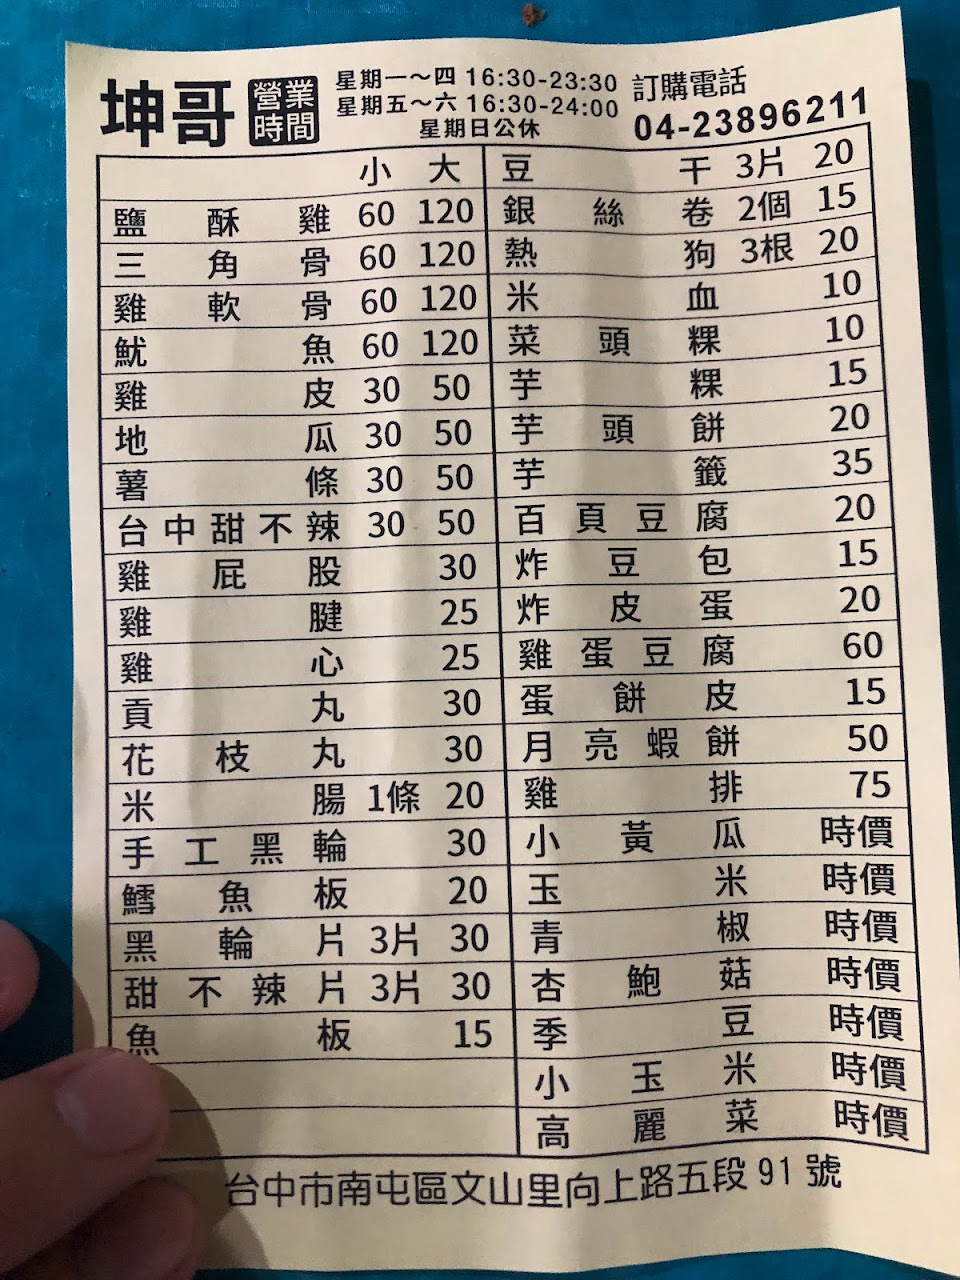 坤哥
營業
時間
星期一～四 16:30-23:30
星期五～六 16:30-24:00
星期日公休
訂購電話
04-23896211
小 大
鹽酥雞 60 120
三角骨 60 120
雞軟骨 60 120
魷魚 60 120
雞皮 30 50
地瓜 30 50
薯條 30 50
台中甜不辣 30 50
雞屁股 30
雞腱 25
雞心 25
貢丸 30
花枝丸 30
米腸 1條 20
手工黑輪 30
鱈魚板 20
黑輪片 3片 30
甜不辣片 3片 30
魚板 15
豆干 3片 20
銀絲卷 2個 15
熱狗 3根 20
米血 10
菜頭粿 10
芋粿 15
芋頭餅 20
芋籤 35
百頁豆腐 20
炸豆包 15
炸皮蛋 20
雞蛋豆腐 60
蛋餅皮 15
月亮蝦餅 50
雞排 75
小黃瓜 時價
玉米 時價
青椒 時價
杏鮑菇 時價
季豆 時價
小玉米 時價
高麗菜 時價
台中市南屯區文山里向上路五段91號